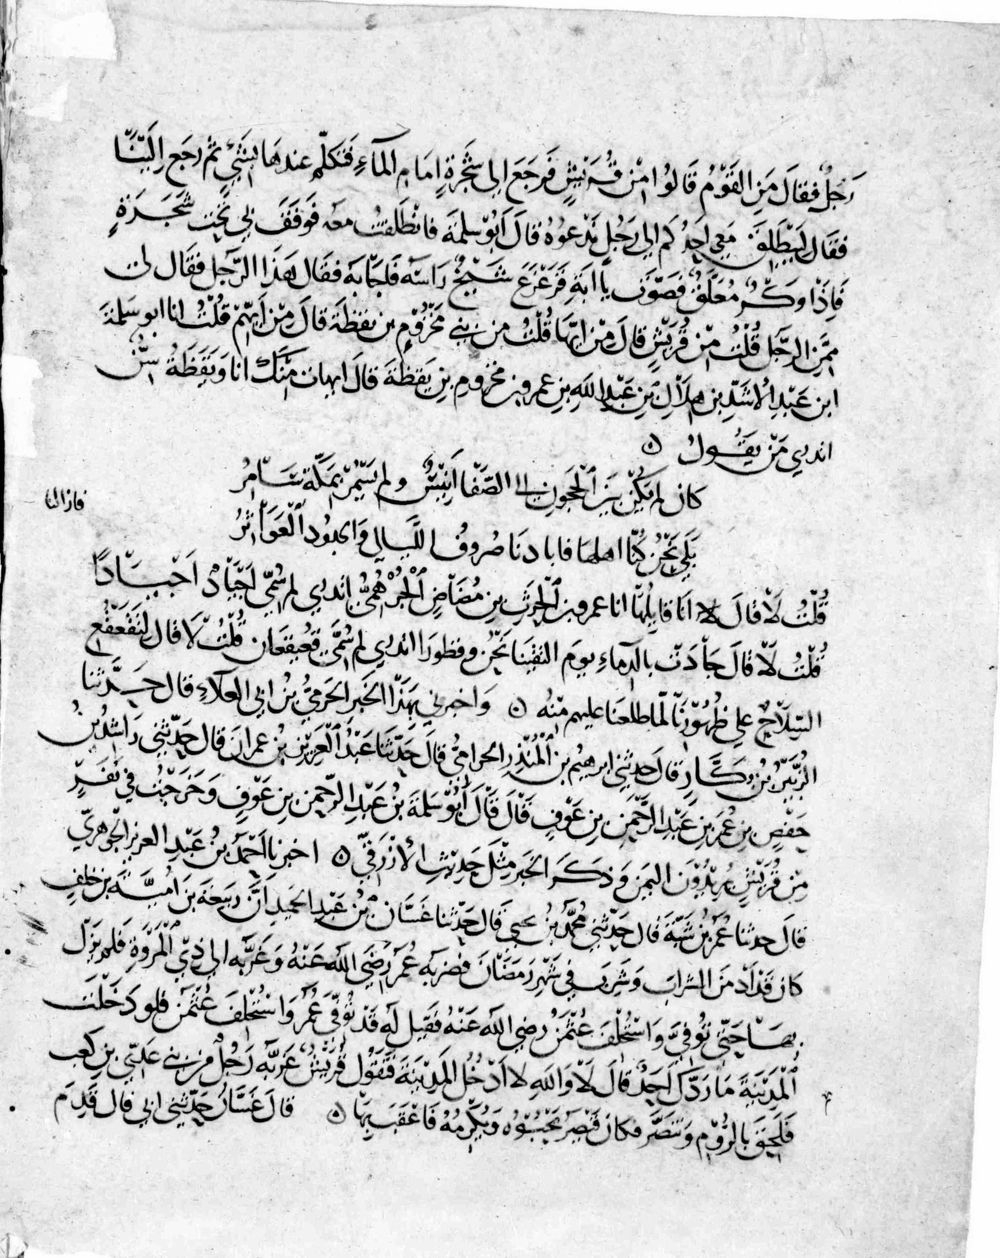 رَجُلٌ فقالَ مَن القَوْمُ قَالُوا مِنْ قُرَيْشٍ فَرجَعَ الى شَجَرَةٍ امَامَ المَاءِ فَتكَلَّمَ عندهَا بشَىْءٍ ثُمّ رجَعَ اِلَيْنَا
فقَالَ لِيَنْطَلِقْ مَعِي احَدُكُم الى رَجُلٍ يَدْعُوهُ قالَ ابُو سلمَةَ فانْطَلَقْتُ معَه فوَقَفَ بي تَحْتَ شَجَرَةٍ
فَاِذَا وَكْرٌ مُعَلَّقٌ فصَوَّتَ يا ابَهْ فَزَعْزَعَ شَيْخٌ رَاسَهُ فاجَابَهُ فقالَ هَذَا الرَّجل فقَالَ لى
مِمَّن الرجُل قُلْتُ مِنْ قُرَيْشٍ قالَ مِنْ ايّها قُلْتُ من بَنِي مَخْزُومٍ بن يقظَة قالَ مِنْ ايّهمْ قُلْتُ انا ابو سَلمَة
ابن عَبْدِ الاشَدِّ بنِ هِلَالِ بْنِ عَبْدِ اللهِ بنِ عمرو بنِ مخزومِ بنِ يَقظَةَ قالَ ايهات مِنْكَ انا وَيَقَظَةُ سِنٌّ
اتدري مَنْ يقُولُ ۝
كان لم يَكُنْ بَيْنَ الْحَجُونِ الى الصَّفَا اَنِيسٌ ولم يَسْمُرْ بمَكّةَ سَامِرُ
فازالنا
بَلَى نحْنُ كُنّا اهلهَا فابادَنَا صُروفُ اللَّيَالي وَالجدُودُ الْعَوَاثرُ
قُلْتُ لا قالَ انَا قايلُها انا عمرو بنُ الْحرِثِ بنِ مُضَاضٍ الْجُرْهُمِيُّ اتدري لم سُمِّي اَجْيَادٌ اجْيَاداً
قُلْتُ لَا قالَ جادَتْ بالدِّمَاءِ يومَ التَقَيْنَا نَحْنُ وقطورَا اتدري لم سُمِّيَ قُعَيقِعَان قُلْتُ لا قالَ لتَقَعْقُعِ
السِّلَاحِ على ظهُورِنَا لمّا طلعنَا عليهم مِنْهُ ۝ وَاخبرني بهَذَا الخبرِ الحَرَمِيُّ بْنُ ابى العلَاءِ قالَ حدَّثنَا
الزُبَيْرُ بْنُ بَكّارٍ قالَ حدثنِي ابرهيم بن الْمُنْذِر الحزامِيُّ قالَ حَدّثنا عَبْدُ العَزيزِ بنُ عمرانَ قالَ حَدّثني راشدُ بنُ
حَفْصِ بنِ عُمَرَ بنِ عَبْدِ الرَّحْمَنِ بن عَوْفٍ قَالَ قَالَ اَبُو سَلمَةَ بْنُ عَبْدِ الرَّحْمَنِ بنِ عَوْفٍ وَخَرَجْتُ في نَفَرٍ
مِن قُرَيْشٍ يُريْدُوْنَ اليمَنَ وَذكَرَ الخبَر مِثْلَ حَدِيْثِ الازْرَقِيّ ۝ اخبرنا اَحْمَدُ بْنُ عَبْدِ العزيز الجوْهريّ
قالَ حدثنا عُمَرُ بنُ شبَّة قالَ حَدّثنِي مُحَمَّدُ بنُ يحيى قَالَ حدّثنا غسَّان بْنُ عَبْدِ الحَميد انَّ ربيعَةَ بنَ امُيَّةَ بنِ خلَفٍ
كانَ قَدْ ادمنَ الشرابَ وَشَرِبَ في شَهْرِ رَمَضَانَ فضربَه عُمَر رَضِيَ اللهُ عَنْهُ وَغرَّبَه الى ذِي الْمَرْوَةِ فلم يَزَل
بهَا حَتّى تُوُفِّيَ وَاسْتُخْلِفَ عُثْمَنُ رضي اللهُ عَنْه فقيلَ لَه قَدْ تُوُفّيَ عُمَر وَاسْتُخْلِفَ عُثمنُ فلو دَخَلْتَ
الْمَدْيْنَةَ مَا رَدَّكَ احَدٌ قَالَ لَا وَاللهِ لا ادْخُلُ المَدِيْنَةَ فَتَقُولُ قُرَيْشٌ غَرَّبَه رَجُلٌ من بني عَدِيّ بنِ كَعْبٍ
فَلَحِقَ بالرُّوْمِ وَتَنَصَّرَ فكَانَ قَيْصَرُ يَحْبُوه وَيُكْرِمُهُ فَاعْقَبَ بهَا ۝ قال غَسَّانُ حَدّثني ابى قالَ قَدِمَ